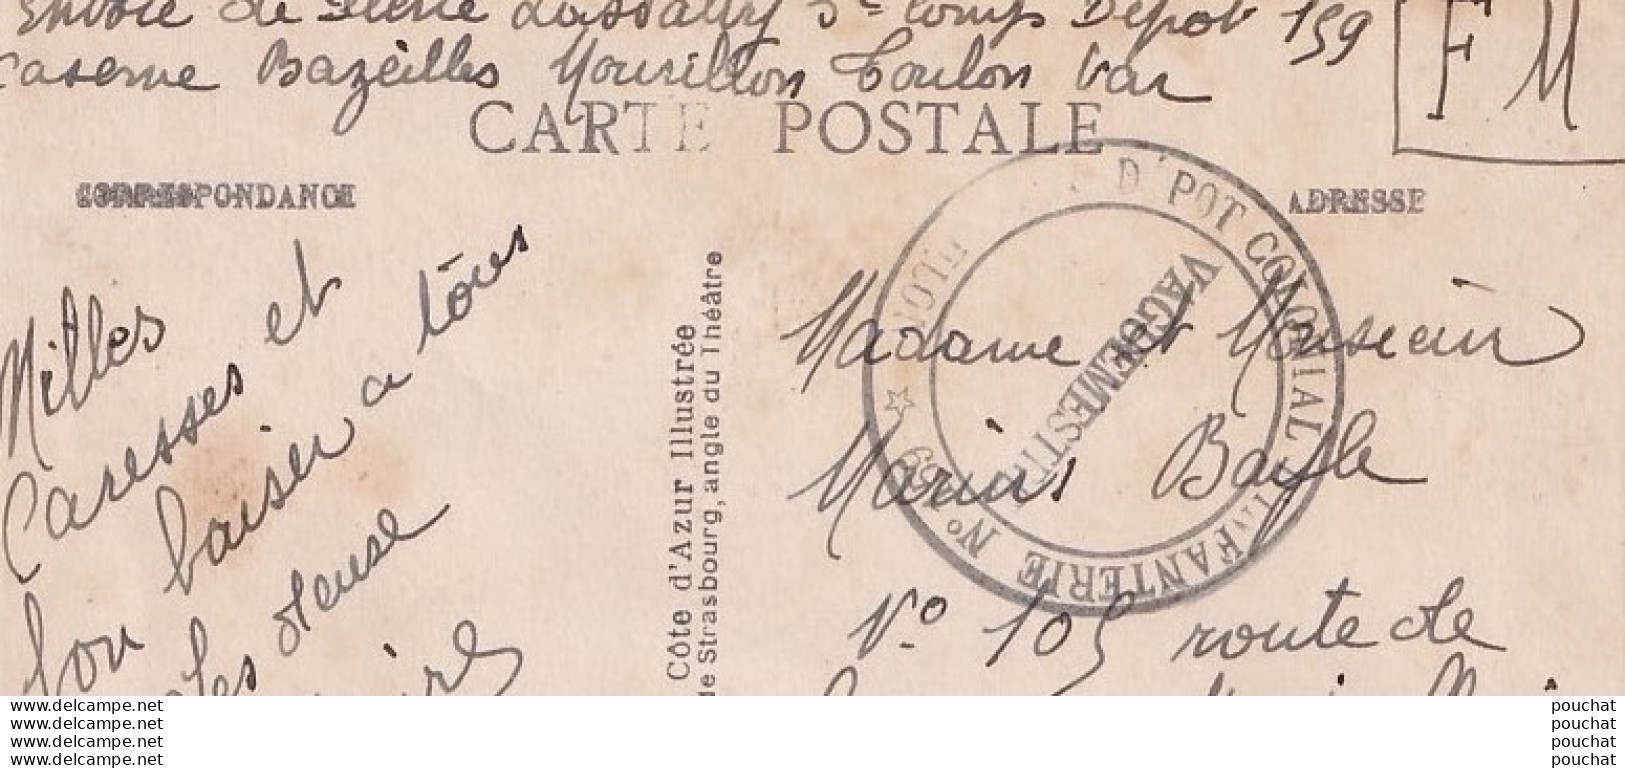 Envoie de Pierre Lassalry 5e Comp Dépot 159
Caserne Bazeilles Mourillon Toulon Var
F M
CARTE POSTALE
CORRESPONDANCE
ADRESSE
Milles
Caresses et
bon baiser a tous
les deuse
Côte d'Azur Illustrée
de Strasbourg, angle du Théâtre
D'POT COLONIAL INFANTERIE No 159
VAGUEMESTRE
Madame et Monsieur
Marius Bayle
No 105 route de
www.delcampe.net
www.delcampe.net
www.delcampe.net
www.delcampe.net
pouchat
pouchat
pouchat
pouchat